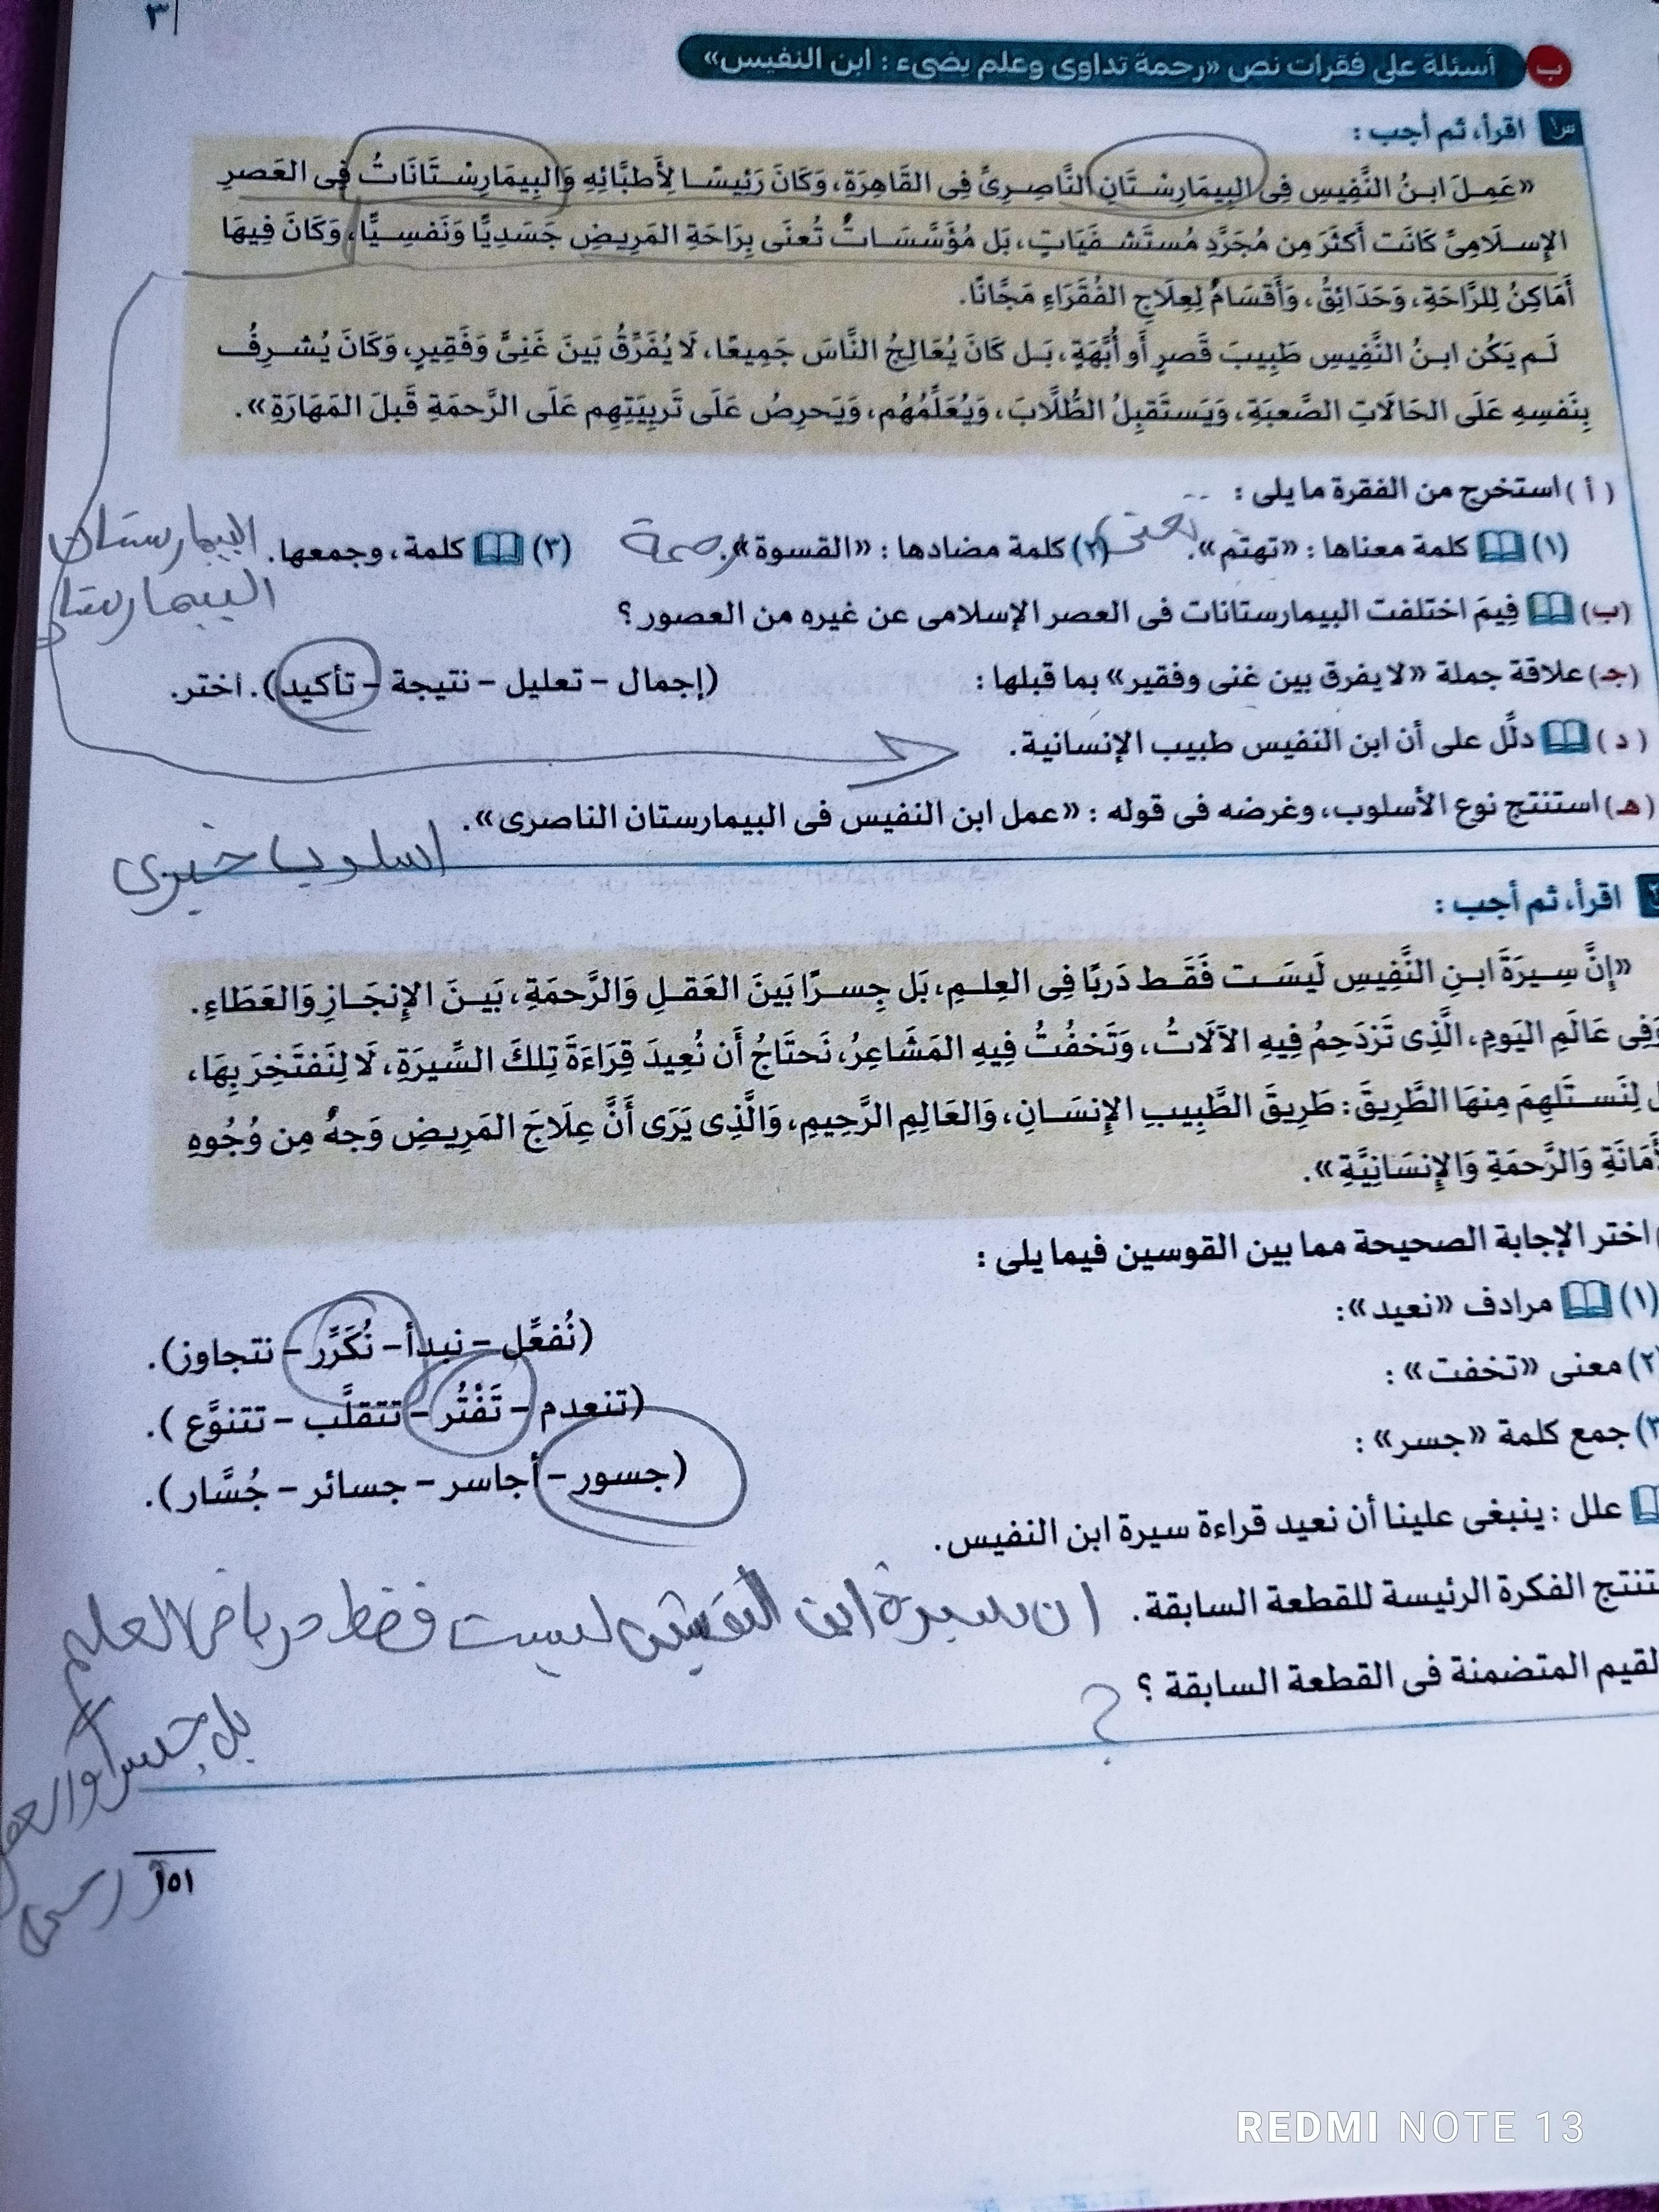 ٣
ب أسئلة على فقرات نص «رحمة تداوى وعلم يضىء : ابن النفيس»
س١ اقرأ، ثم أجب :
«عَمِلَ ابنُ النَّفِيسِ فِى البِيمَارِسْتَانِ النَّاصِرِىِّ فِى القَاهِرَةِ، وَكَانَ رَئِيسًا لِأَطِبَّائِهِ وَالبِيمَارِسْتَانَاتُ فِى العَصرِ
الإِسلَامِىِّ كَانَت أَكثَرَ مِن مُجَرَّدِ مُستَشفَيَاتٍ، بَل مُؤَسَّسَاتٌ تُعنَى بِرَاحَةِ المَرِيضِ جَسَدِيًّا وَنَفسِيًّا، وَكَانَ فِيهَا
أَمَاكِنُ لِلرَّاحَةِ، وَحَدَائِقُ، وَأَقسَامٌ لِعِلَاجِ الفُقَرَاءِ مَجَّانًا.
لَم يَكُن ابنُ النَّفِيسِ طَبِيبَ قَصرٍ أَو أُبَّهَةٍ، بَل كَانَ يُعَالِجُ النَّاسَ جَمِيعًا، لَا يُفَرِّقُ بَينَ غَنِىٍّ وَفَقِيرٍ، وَكَانَ يُشرِفُ
بِنَفسِهِ عَلَى الحَالَاتِ الصَّعبَةِ، وَيَستَقبِلُ الطُّلَّابَ، وَيُعَلِّمُهُم، وَيَحرِصُ عَلَى تَربِيَتِهِم عَلَى الرَّحمَةِ قَبلَ المَهَارَةِ».
(أ) استخرج من الفقرة ما يلى :
(١) كلمة معناها : «تهتم». تعنى (٢) كلمة مضادها : «القسوة». رحمة (٣) كلمة، وجمعها. البيمارستان
البيمارستا
(ب) فِيمَ اختلفت البيمارستانات فى العصر الإسلامى عن غيره من العصور ؟
(جـ) علاقة جملة «لا يفرق بين غنى وفقير» بما قبلها : (إجمال – تعليل – نتيجة – تأكيد). اختر.
(د) دلِّل على أن ابن النفيس طبيب الإنسانية.
(هـ) استنتج نوع الأسلوب، وغرضه فى قوله : «عمل ابن النفيس فى البيمارستان الناصرى».
اسلوب خبرى
اقرأ، ثم أجب :
«إِنَّ سِيرَةَ ابنِ النَّفِيسِ لَيسَت فَقَط دَربًا فِى العِلمِ، بَل جِسرًا بَينَ العَقلِ وَالرَّحمَةِ، بَينَ الإِنجَازِ وَالعَطَاءِ.
وَفِى عَالَمِ اليَومِ، الَّذِى تَزدَحِمُ فِيهِ الآلَاتُ، وَتَخفُتُ فِيهِ المَشَاعِرُ، نَحتَاجُ أَن نُعِيدَ قِرَاءَةَ تِلكَ السِّيرَةِ، لَا لِنَفتَخِرَ بِهَا،
ل لِنَستَلهِمَ مِنهَا الطَّرِيقَ : طَرِيقَ الطَّبِيبِ الإِنسَانِ، وَالعَالِمِ الرَّحِيمِ، وَالَّذِى يَرَى أَنَّ عِلَاجَ المَرِيضِ وَجهٌ مِن وُجُوهِ
أَمَانَةِ وَالرَّحمَةِ وَالإِنسَانِيَّةِ».
اختر الإجابة الصحيحة مما بين القوسين فيما يلى :
(١) مرادف «نعيد»: (نُفعِّل – نبدأ – نُكَرِّر – نتجاوز).
(٢) معنى «تخفت» : (تنعدم – تَفْتُر – تتقلَّب – تتنوَّع).
٣) جمع كلمة «جسر» : (جسور – أجاسر – جسائر – جُسَّار).
علل : ينبغى علينا أن نعيد قراءة سيرة ابن النفيس.
تنتج الفكرة الرئيسة للقطعة السابقة. ان سيرة ابن النفيس ليست فقط دربا فى العلم
لقيم المتضمنة فى القطعة السابقة ؟ ?
بل جسرا
١٥١
REDMI NOTE 13